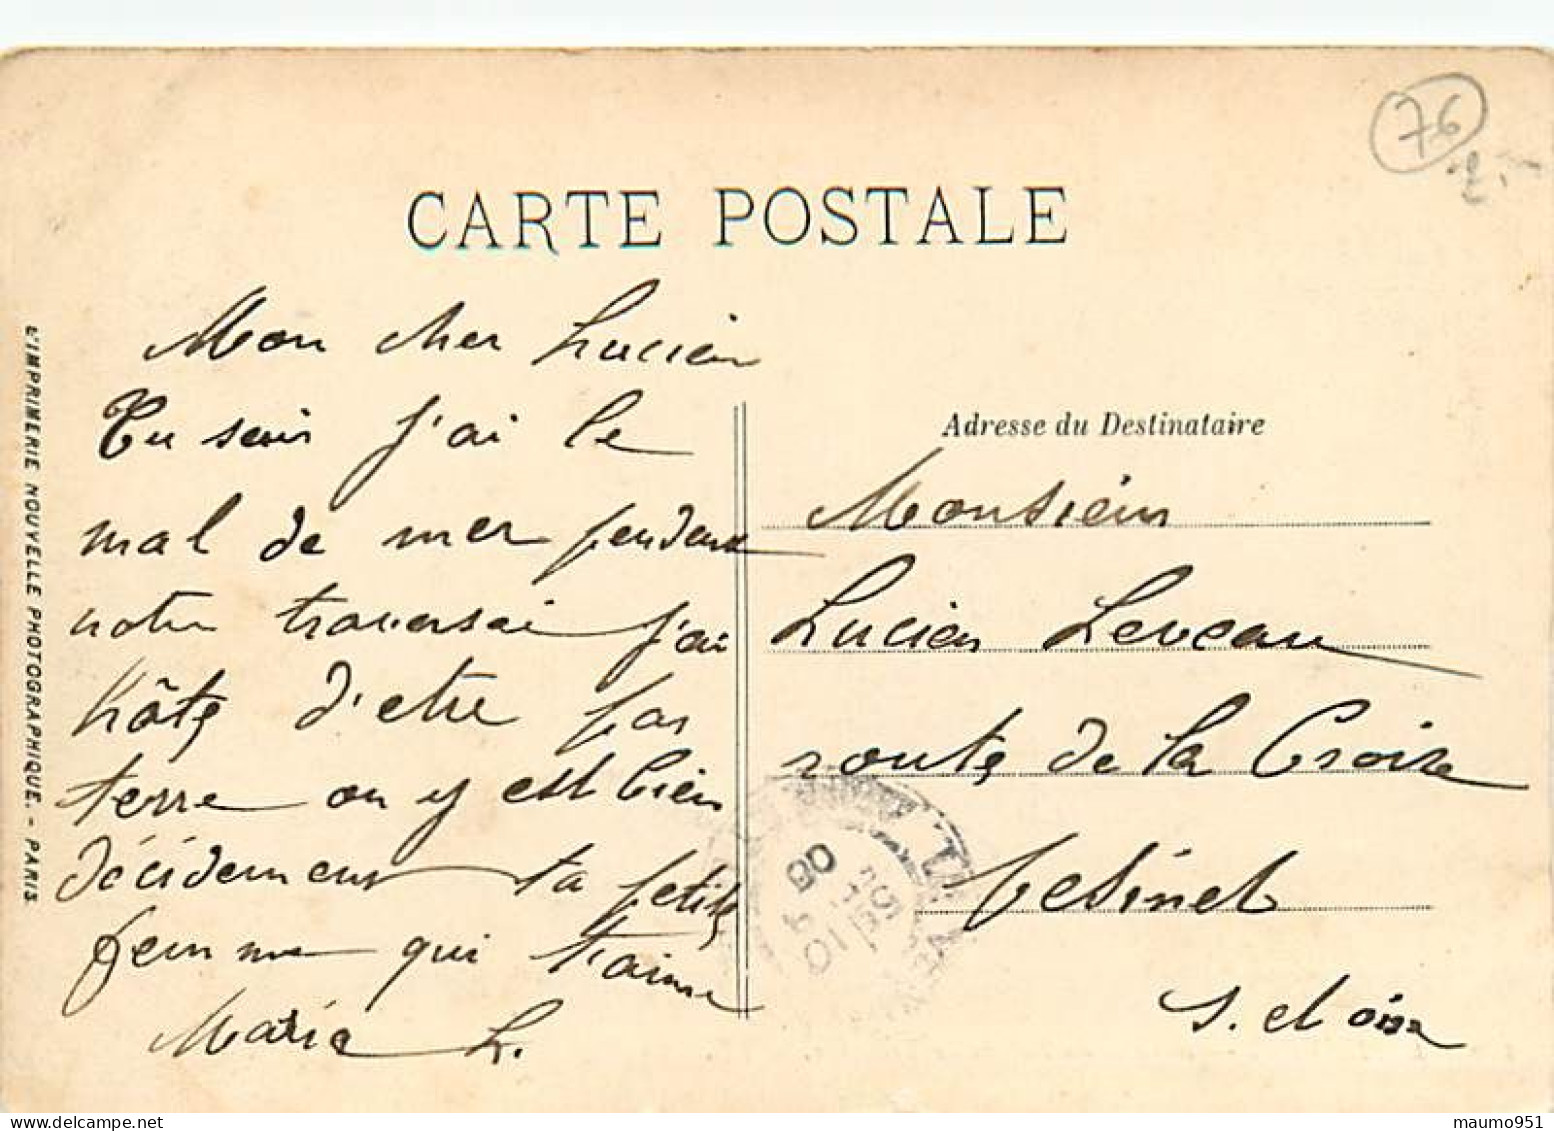 76
CARTE POSTALE
Mon cher Lucien
Tu sais j'ai le
mal de mer pendant
notre traversai j'ai
hâte d'etre par
terre on y est bien
décidement ta petite
femme qui t'aime
Marie L.
Adresse du Destinataire
Monsieur
Lucien Leveau
route de la Croix
Vesinet
S. et oise
08
L'IMPRIMERIE NOUVELLE PHOTOGRAPHIQUE. - PARIS
maumo951